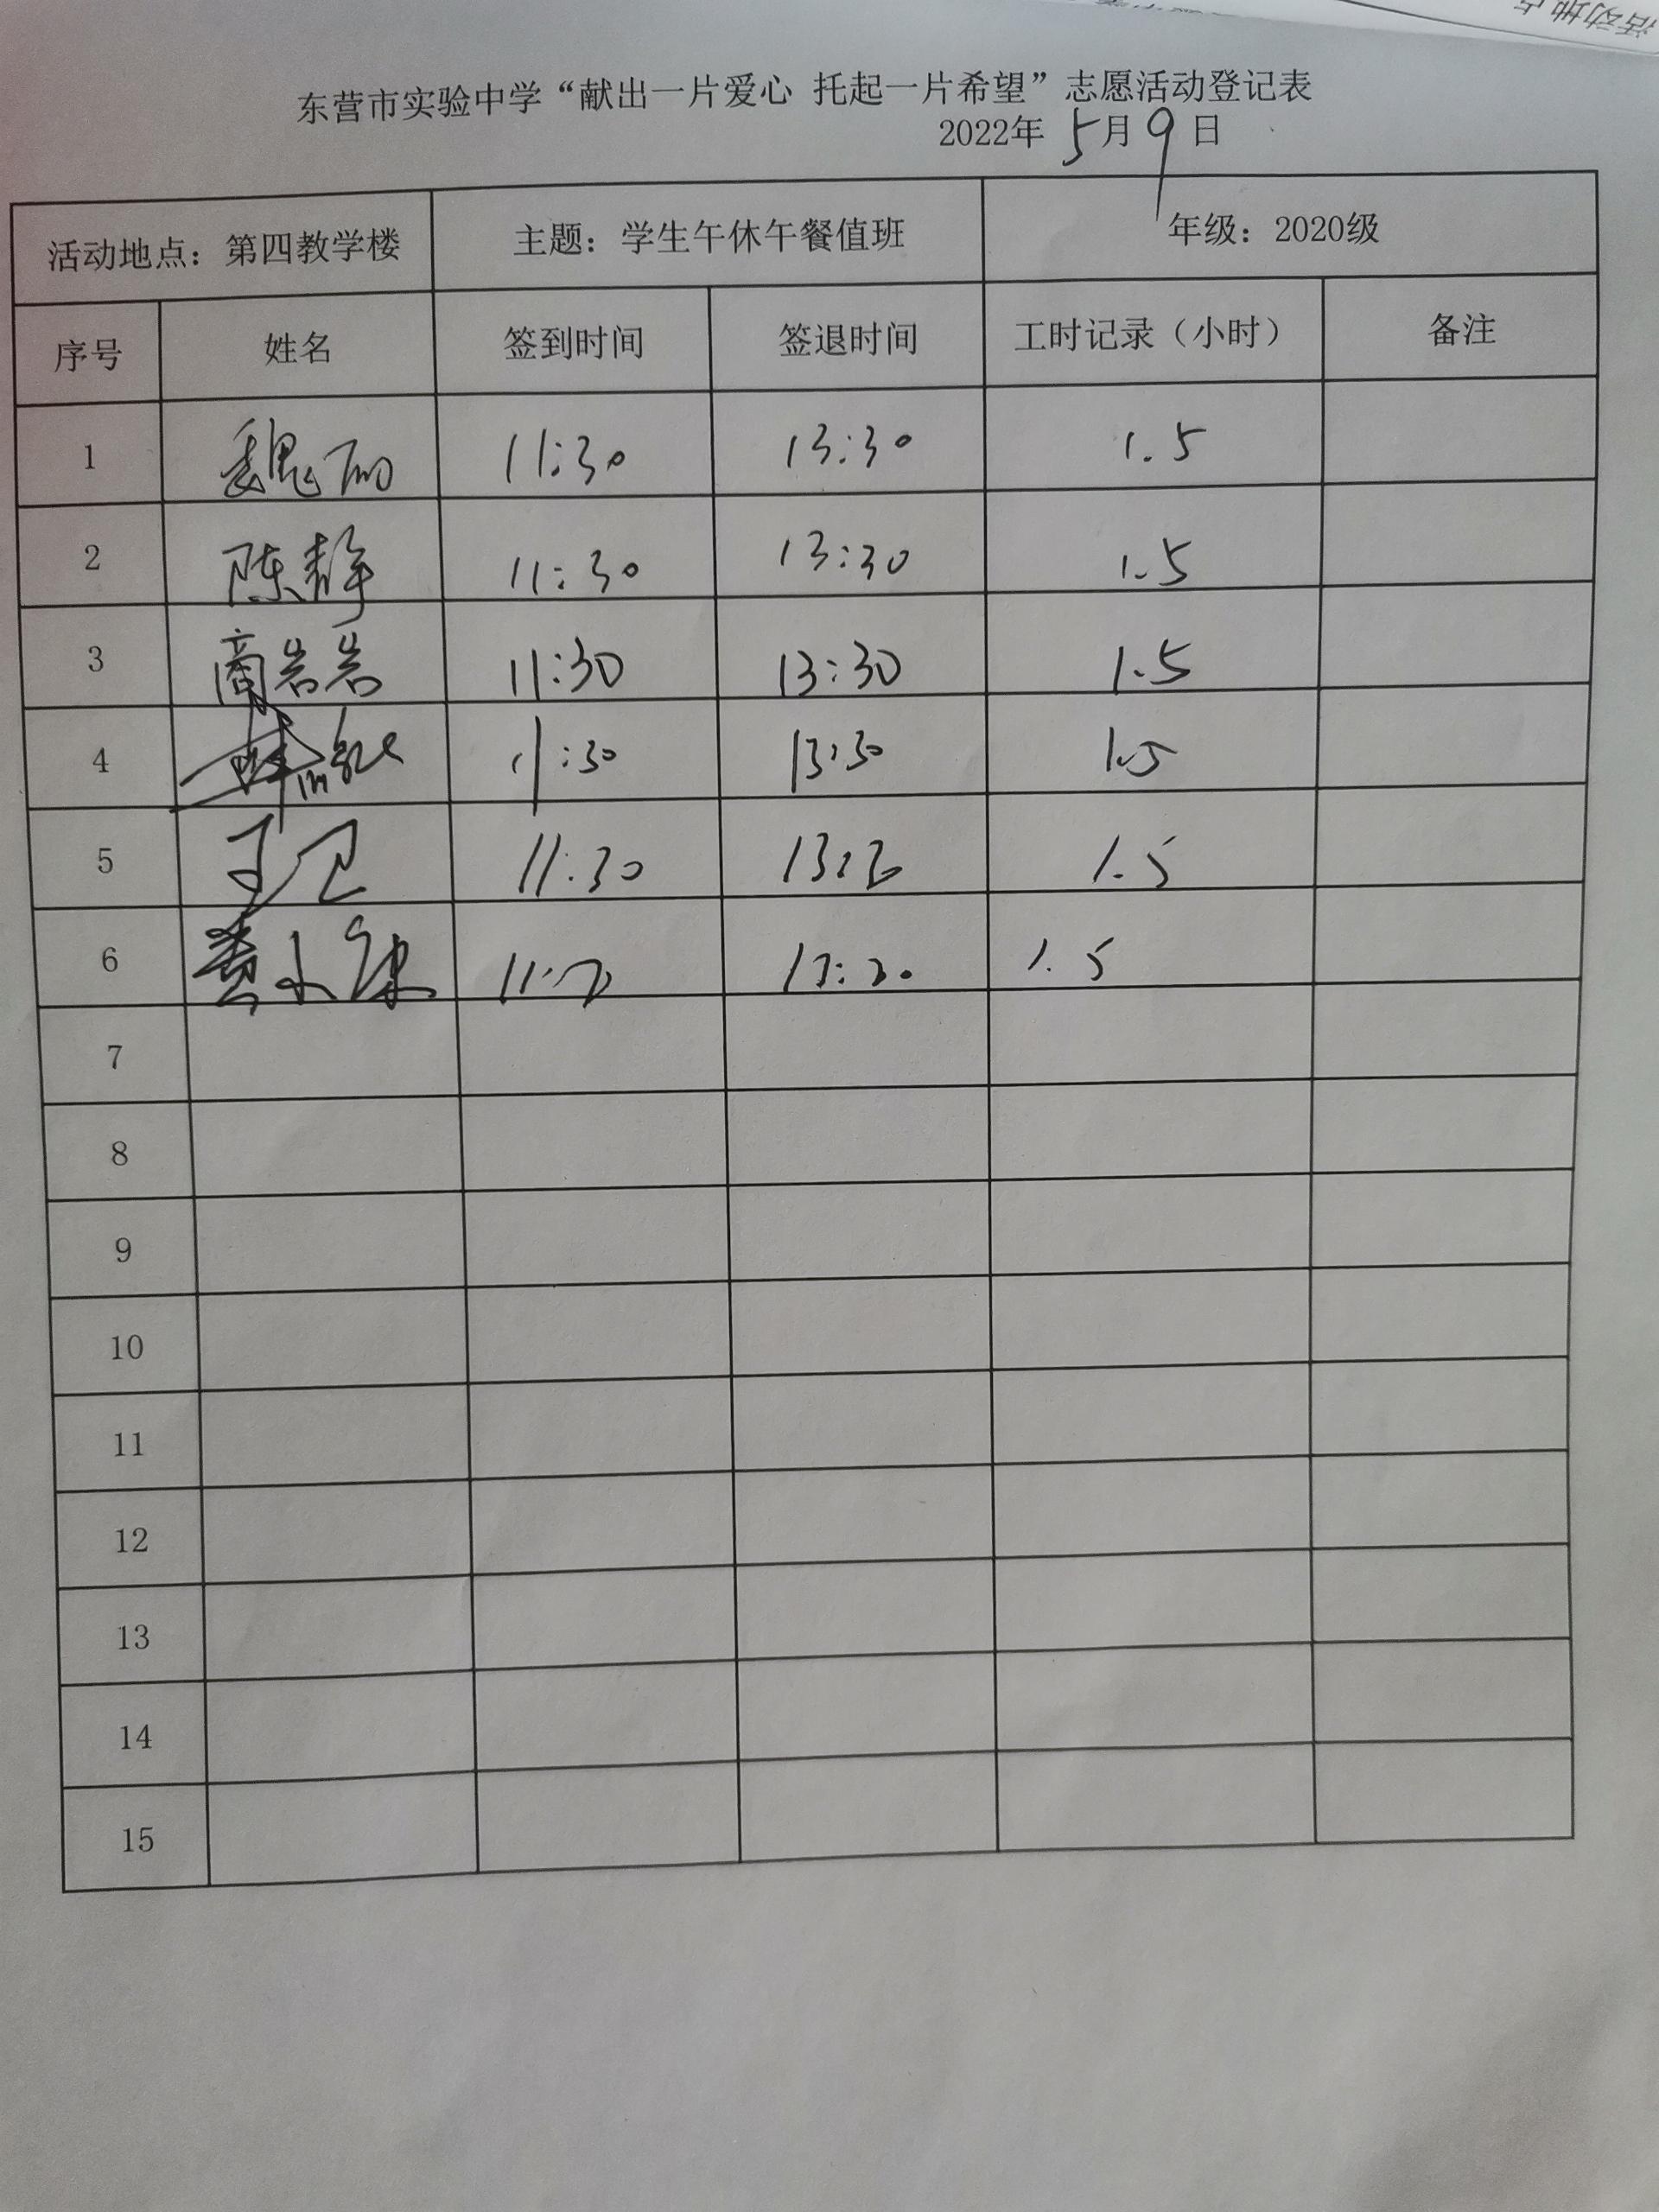 活动地点
东营市实验中学“献出一片爱心 托起一片希望”志愿活动登记表
2022年 5月 9日
活动地点：第四教学楼 主题：学生午休午餐值班 年级：2020级
序号 姓名 签到时间 签退时间 工时记录（小时） 备注
1 魏丽 11:30 13:30 1.5
2 陈静 11:30 13:30 1.5
3 商岩岩 11:30 13:30 1.5
4 11:30 13:30 1.5
5 王卫 11:30 13:30 1.5
6 黄 11:30 13:30 1.5
7
8
9
10
11
12
13
14
15